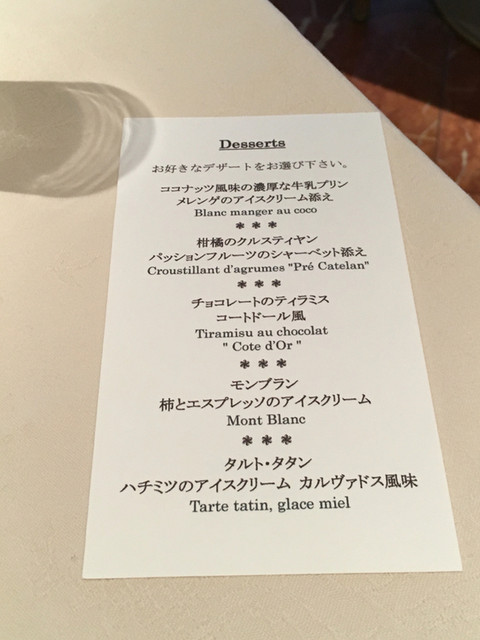 Desserts
お好きなデザートをお選び下さい。
ココナッツ風味の濃厚な牛乳プリン
メレンゲのアイスクリーム添え
Blanc manger au coco
＊＊＊
柑橘のクルスティヤン
パッションフルーツのシャーベット添え
Croustillant d'agrumes "Pré Catelan"
＊＊＊
チョコレートのティラミス
コートドール風
Tiramisu au chocolat
" Cote d'Or "
＊＊＊
モンブラン
柿とエスプレッソのアイスクリーム
Mont Blanc
＊＊＊
タルト・タタン
ハチミツのアイスクリーム カルヴァドス風味
Tarte tatin, glace miel